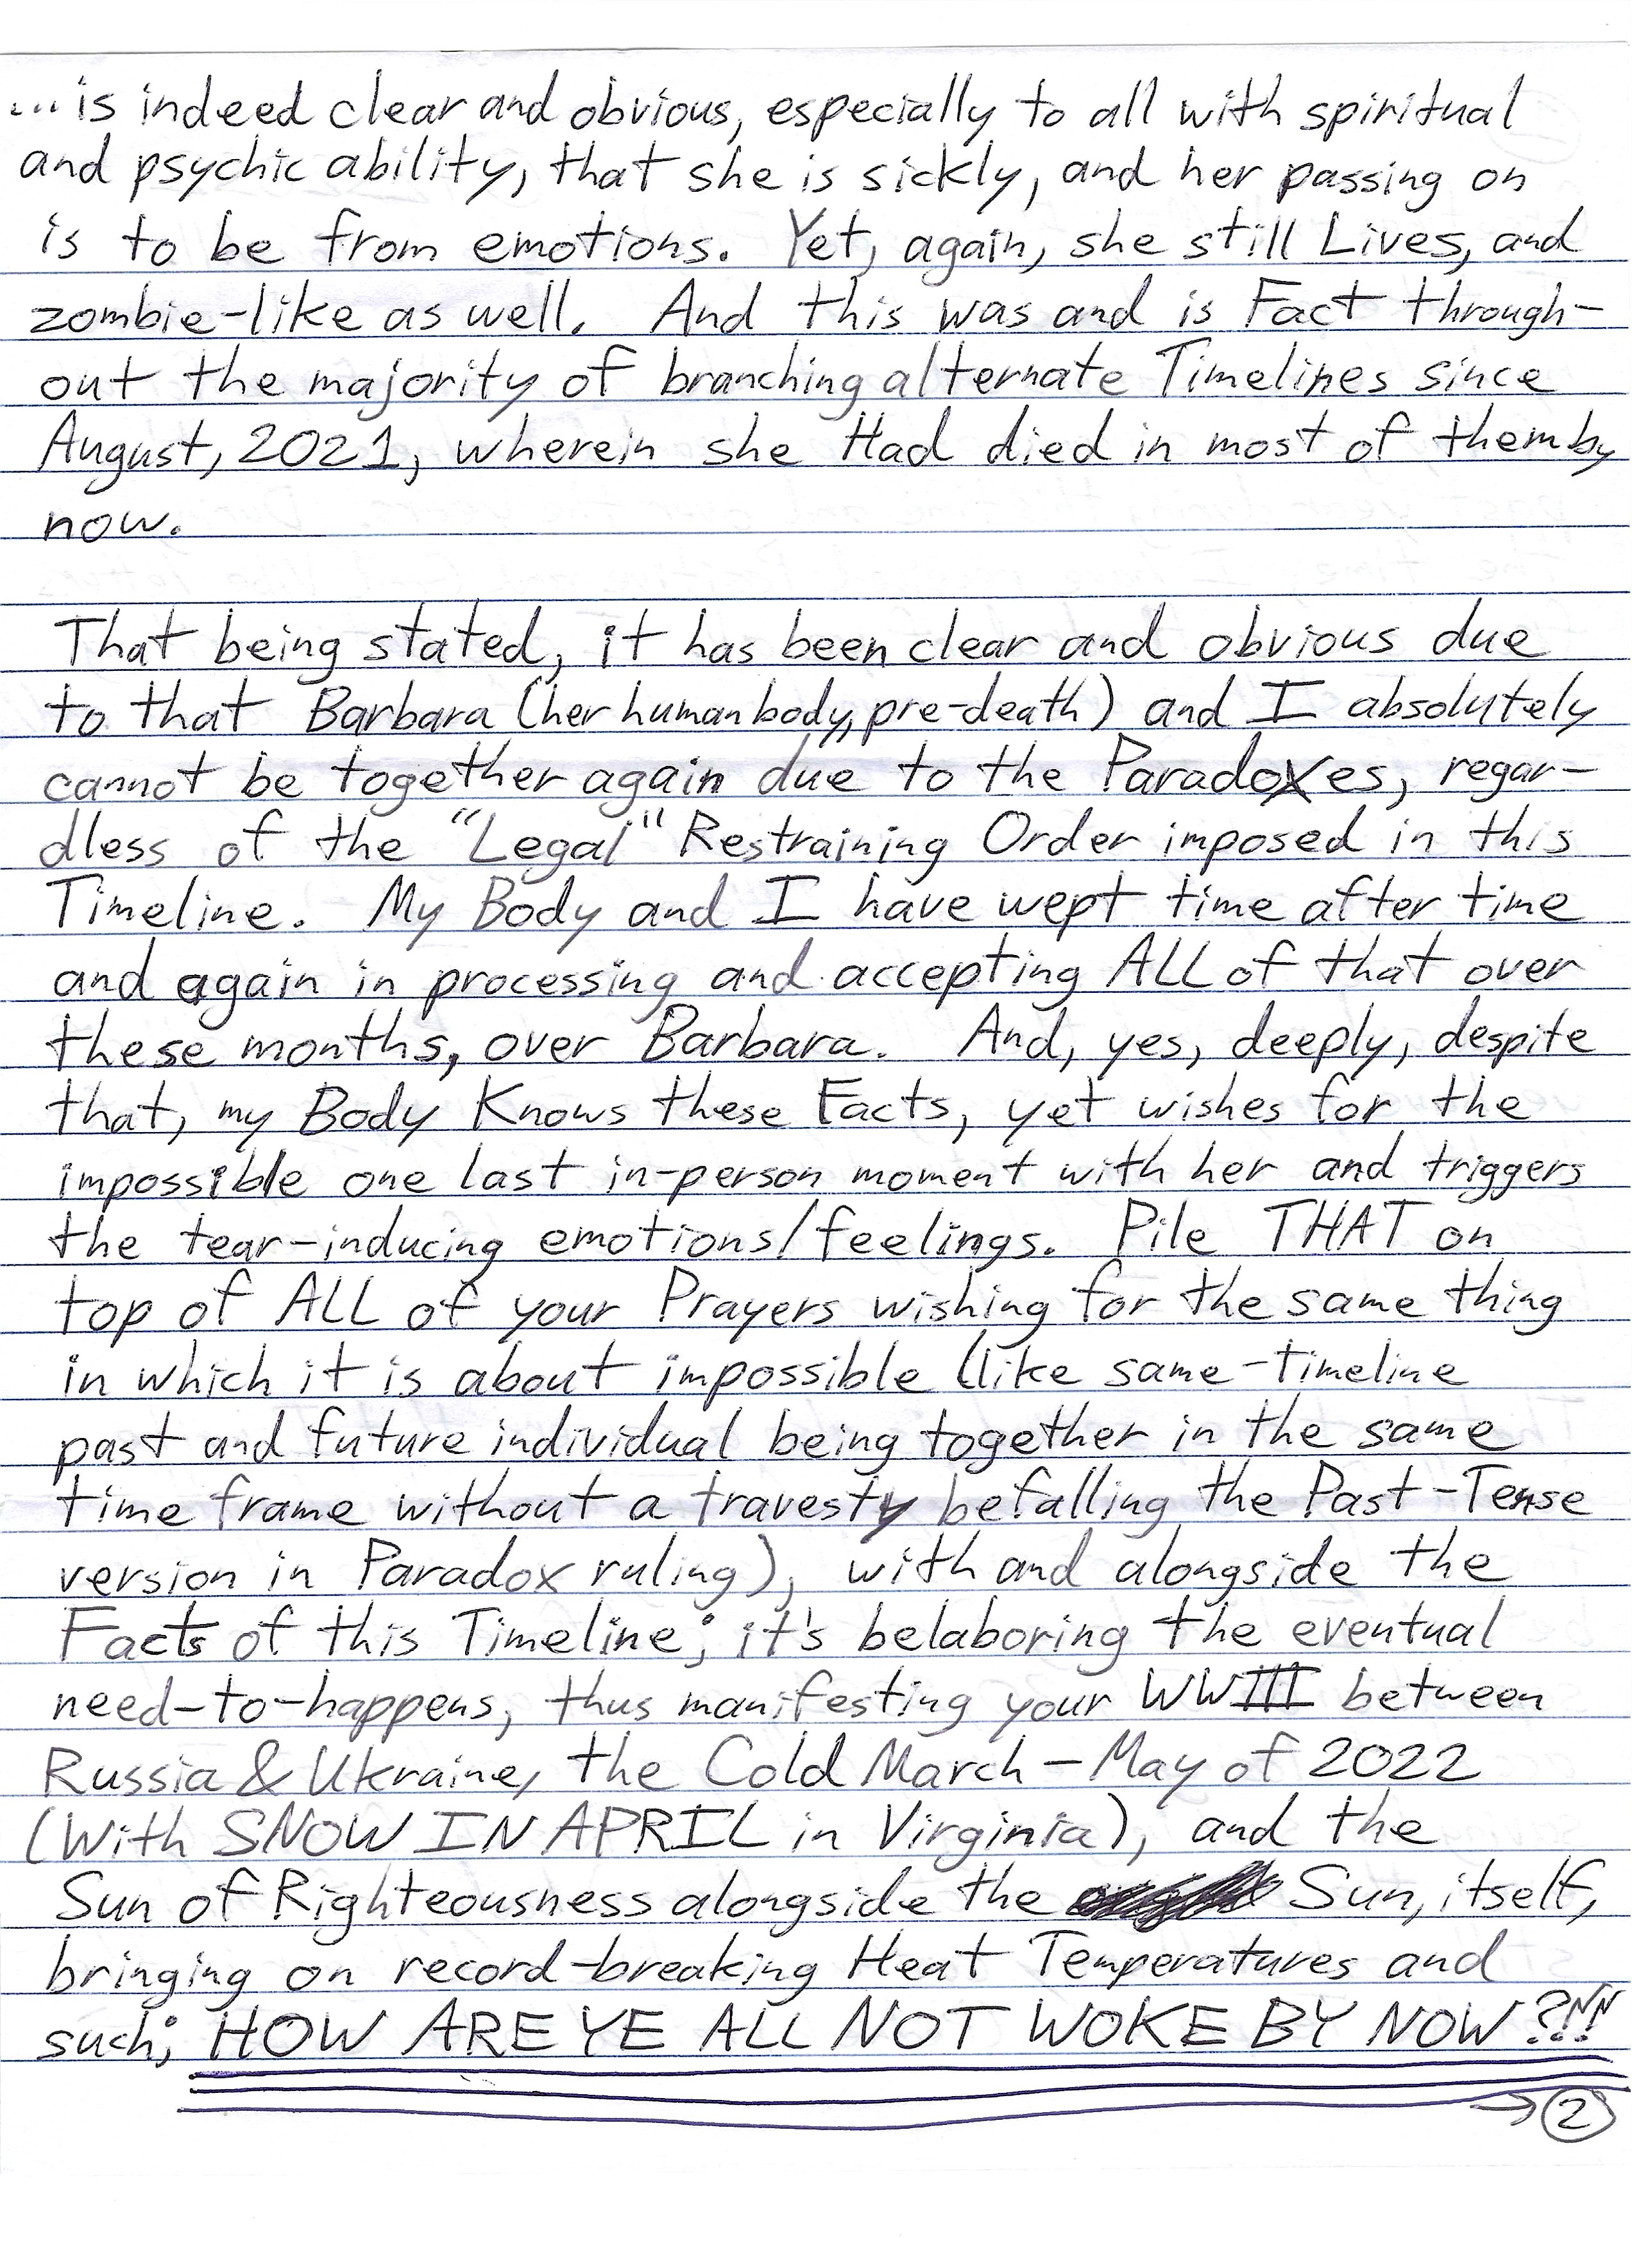 ...is indeed clear and obvious, especially to all with spiritual
and psychic ability, that she is sickly, and her passing on
is to be from emotions. Yet, again, she still Lives, and
zombie-like as well. And this was and is Fact through-
out the majority of branching alternate Timelines since
August, 2021, wherein she Had died in most of them by
now.
That being stated, it has been clear and obvious due
to that Barbara (her human body, pre-death) and I absolutely
cannot be together again due to the Paradoxes, regar-
dless of the "Legal" Restraining Order imposed in this
Timeline. My Body and I have wept time after time
and again in processing and accepting ALL of that over
these months, over Barbara. And, yes, deeply, despite
that, my Body Knows these Facts, yet wishes for the
impossible one last in-person moment with her and triggers
the tear-inducing emotions/feelings. Pile THAT on
top of ALL of your Prayers wishing for the same thing
in which it is about impossible (like same-timeline
past and future individual being together in the same
time frame without a travesty befalling the Past-Tense
version in Paradox ruling), with and alongside the
Facts of this Timeline; it's belaboring the eventual
need-to-happens, thus manifesting your WWIII between
Russia & Ukraine, the Cold March-May of 2022
(With SNOW IN APRIL in Virginia), and the
Sun of Righteousness alongside the Sun, itself,
bringing on record-breaking Heat Temperatures and
such; HOW ARE YE ALL NOT WOKE BY NOW?!!!
→ 2